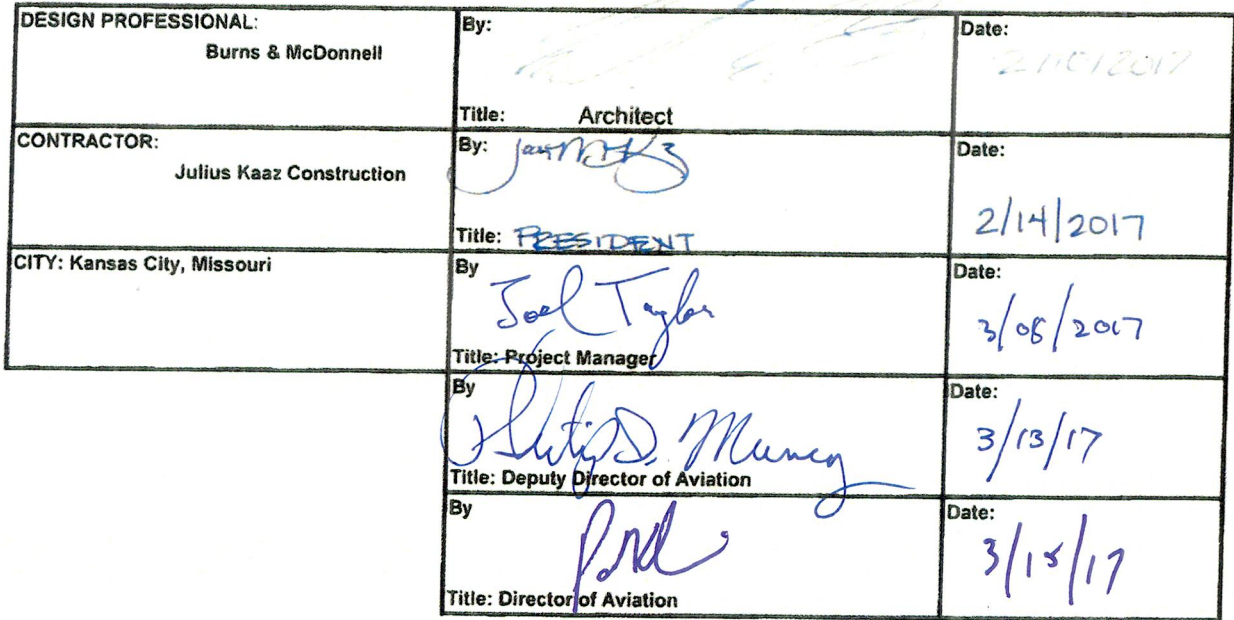 DESIGN PROFESSIONAL:
Burns & McDonnell
By:
Title: Architect
Date:
CONTRACTOR:
Julius Kaaz Construction
By:
Title: PRESIDENT
Date:
2/14/2017
CITY: Kansas City, Missouri
By
Joel Taylor
Title: Project Manager
Date:
3/08/2017
By
Philip D. Muncy
Title: Deputy Director of Aviation
Date:
3/13/17
By
Title: Director of Aviation
Date:
3/15/17